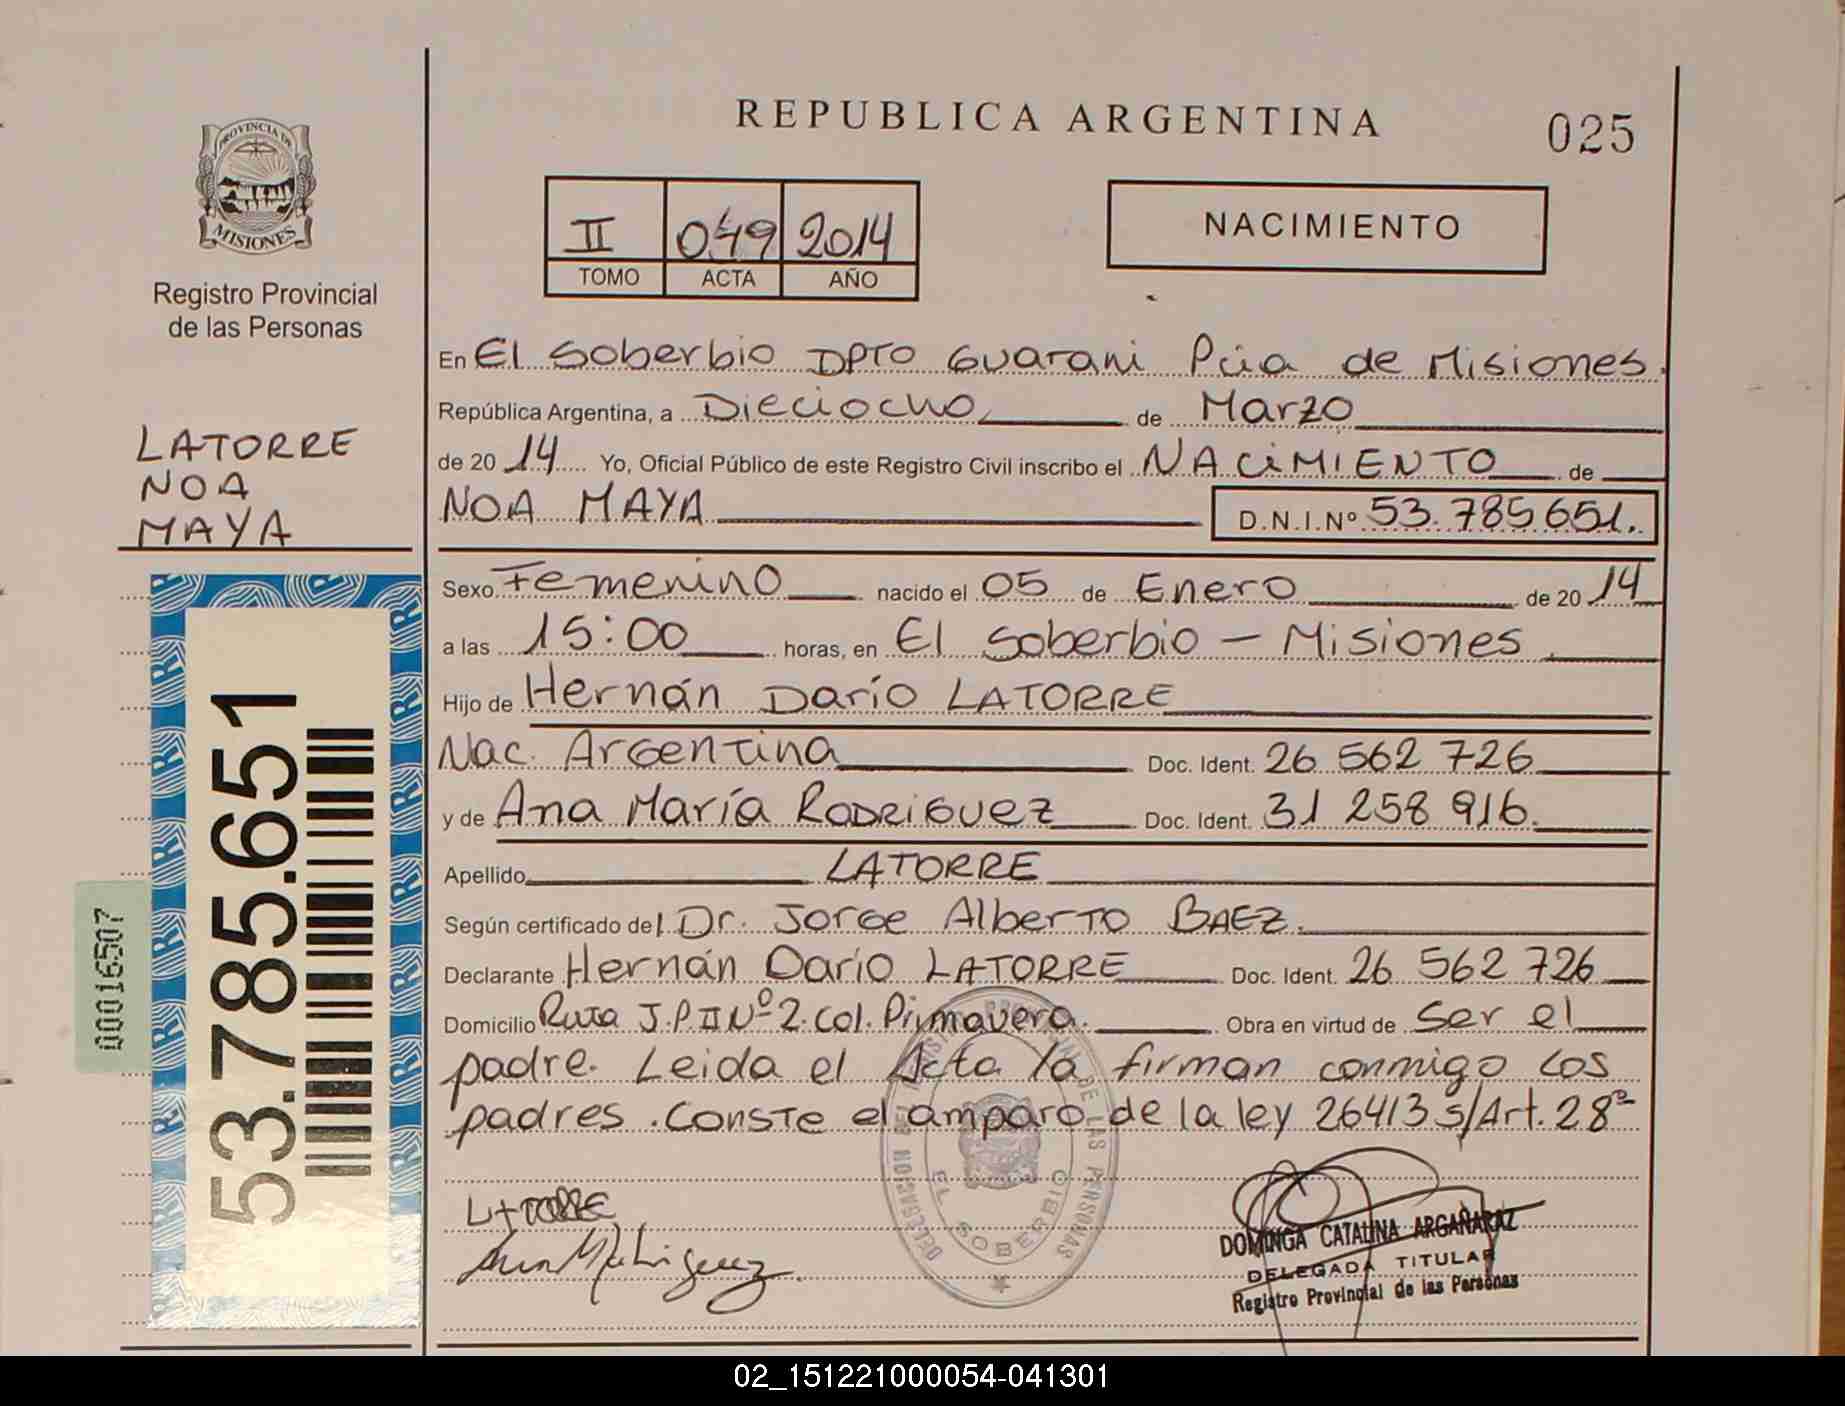 REPUBLICA ARGENTINA
025
PROVINCIA DE
MISIONES
Registro Provincial
de las Personas
II 049 2014
TOMO ACTA AÑO
NACIMIENTO
LATORRE
NOA
MAYA
En El Soberbio DPTO Guarani Pcia de Misiones.
República Argentina, a Dieciocho de Marzo
de 20 14 Yo, Oficial Público de este Registro Civil inscribo el NACiMIENTO de
NOA MAYA D.N.I.Nº 53.785651.
Sexo Femenino nacido el 05 de Enero de 20 14
a las 15:00 horas, en El Soberbio – Misiones
Hijo de Hernán Darío LATORRE
Nac. Argentina Doc. Ident. 26 562 726
y de Ana María RODRIGUEZ Doc. Ident. 31 258 916.
Apellido LATORRE
Según certificado del Dr. Jorge Alberto BAEZ.
Declarante Hernán Darío LATORRE Doc. Ident. 26 562 726
Domicilio Ruta J.P.II Nº 2. Col. Primavera. Obra en virtud de Ser el
padre. Leida el Acta la firman conmigo los
padres. Conste el amparo de la ley 26413 s/Art. 28º
53.785.651
00016507
LATORRE
EL SOBERBIO
DE LAS PERSONAS
DOMINGA CATALINA ARGAÑARAZ
DELEGADA TITULAR
Registro Provincial de las Personas
02_151221000054-041301